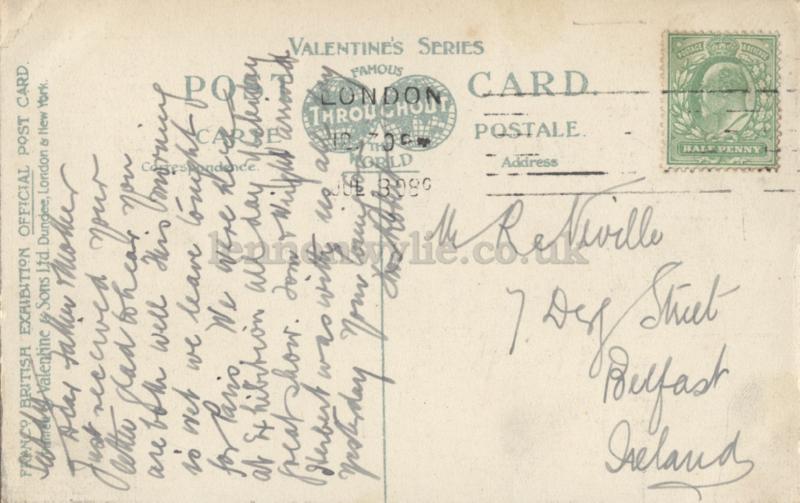 VALENTINE'S SERIES
POST CARD.
FAMOUS
THROUGHOUT
THE
WORLD
CARTE POSTALE.
Correspondence.
Address
LONDON
12.30 PM
JUL 3 08
POSTAGE REVENUE
HALF PENNY
FRANCO BRITISH EXHIBITION OFFICIAL POST CARD.
Valentine & Sons Ltd. Dundee, London & New York.
Dear Father & Mother
Just received your
letter glad to hear you
are both well this morning
is wet we leave tonight
for Paris We were
at Exhibition all day Friday
great show. Tom & Wright arrived
Herbert was with us all day
yesterday Your loving
lennonwylie.co.uk
Mr R Neville
7 Derg Street
Belfast
Ireland